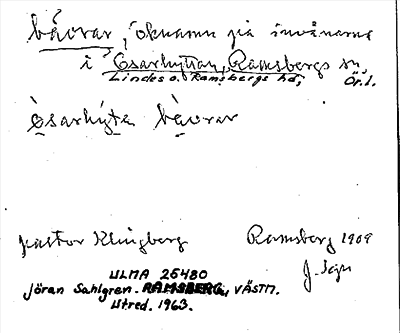 bävrar, öknamn på invånarna
i Ösarhyttan, Ramsbergs sn,
Lindes o. Ramsbergs hd, Ör.l.
Ösarhýta bävrar
pastor Klingberg Ramsberg 1909
J. Sgn
ULMA 26480
Jöran Sahlgren. RAMSBERG, VÄSTM.
Utred. 1963.